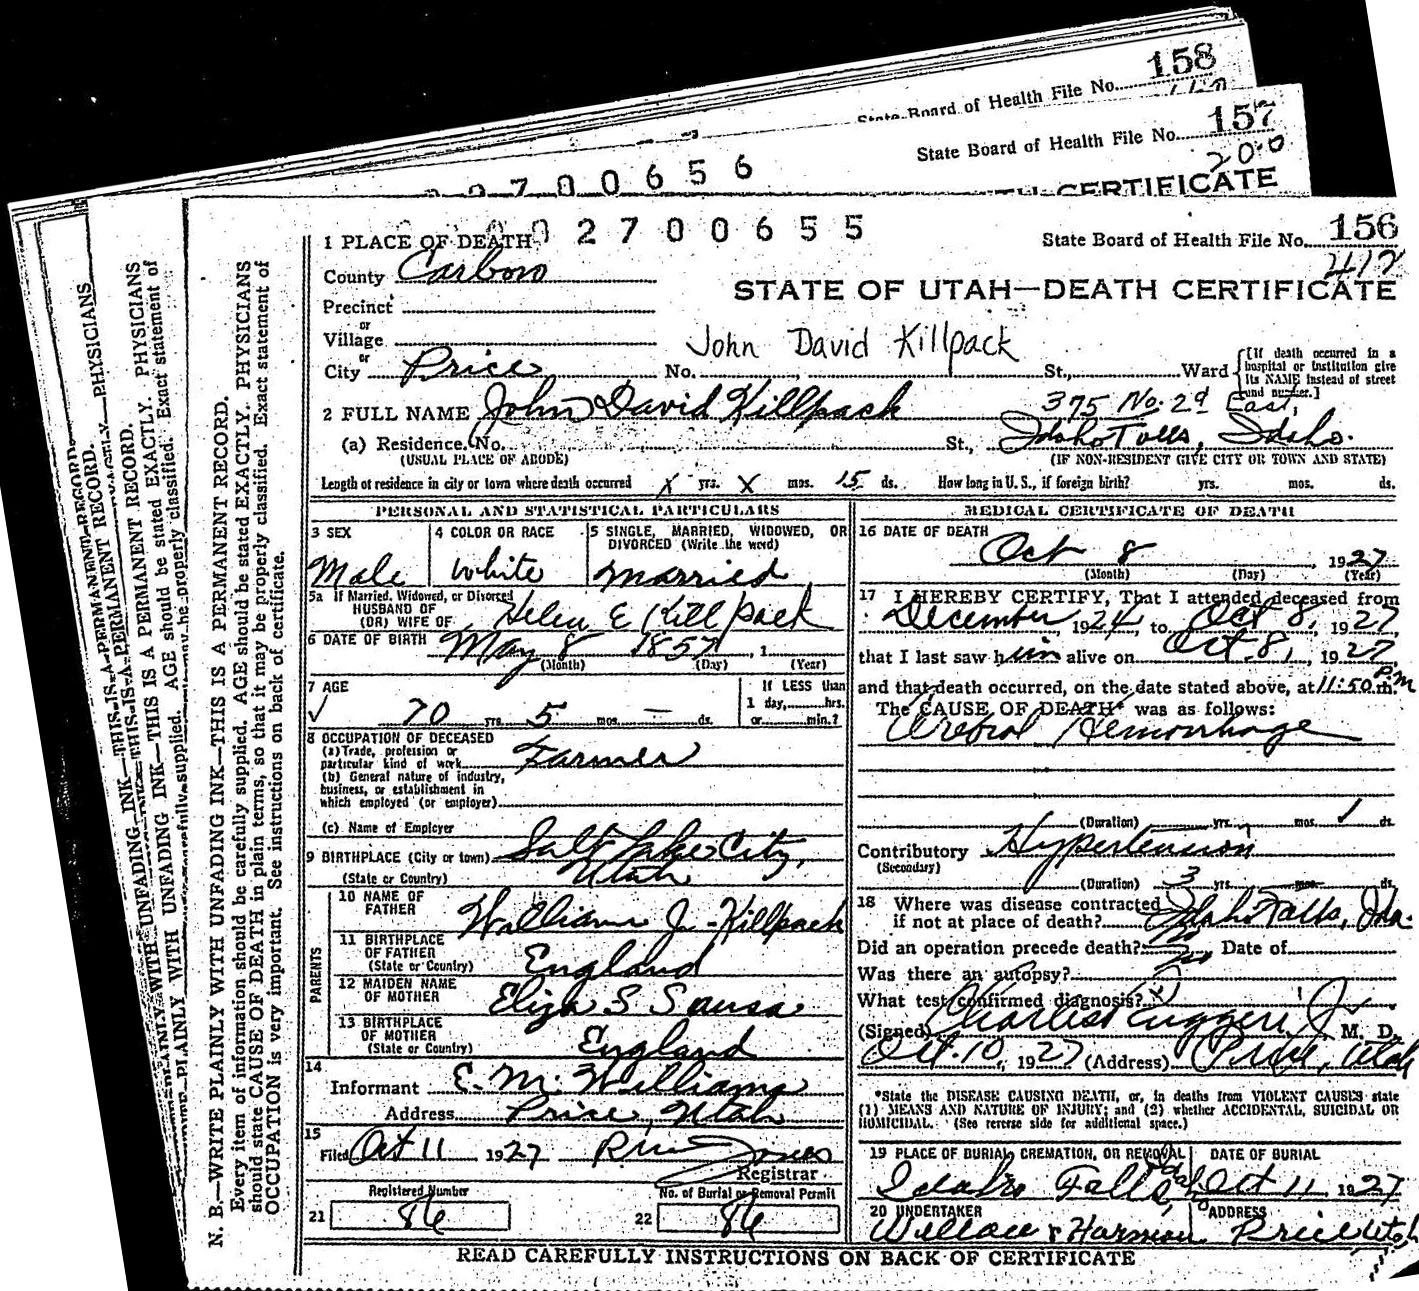 158
State Board of Health File No.
157
State Board of Health File No.
200
2700656
CERTIFICATE
2700655
156
State Board of Health File No.
412
STATE OF UTAH—DEATH CERTIFICATE
1 PLACE OF DEATH
County Carbon
Precinct
or
Village
or
City Price No. St., Ward
[If death occurred in a
hospital or institution give
its NAME instead of street
and number.]
John David Killpack
2 FULL NAME John David Killpack
375 No. 2d East,
(a) Residence. No. St., Idaho Falls, Idaho.
(USUAL PLACE OF ABODE) (IF NON-RESIDENT GIVE CITY OR TOWN AND STATE)
Length of residence in city or town where death occurred x yrs. x mos. 15 ds. How long in U. S., if foreign birth? yrs. mos. ds.
PERSONAL AND STATISTICAL PARTICULARS
3 SEX
Male
4 COLOR OR RACE
White
5 SINGLE, MARRIED, WIDOWED, OR
DIVORCED (Write the word)
Married
5a If Married, Widowed, or Divorced
HUSBAND OF
(OR) WIFE OF Helen E Killpack
6 DATE OF BIRTH May 8 1857, 1
(Month) (Day) (Year)
7 AGE
70 yrs. 5 mos. — ds.
If LESS than
1 day, hrs.
or min.?
8 OCCUPATION OF DECEASED
(a) Trade, profession or
particular kind of work Farmer
(b) General nature of industry,
business, or establishment in
which employed (or employer)
(c) Name of Employer
9 BIRTHPLACE (City or town) Salt Lake City,
(State or Country) Utah
PARENTS
10 NAME OF
FATHER William J. Killpack
11 BIRTHPLACE
OF FATHER
(State or Country) England
12 MAIDEN NAME
OF MOTHER Eliza S
13 BIRTHPLACE
OF MOTHER
(State or Country) England
14
Informant E. M. Williams
Address Price, Utah
15
Filed Oct 11 1927
Registrar
Registered Number
21 86
No. of Burial or Removal Permit
22 86
MEDICAL CERTIFICATE OF DEATH
16 DATE OF DEATH
Oct 8, 1927
(Month) (Day) (Year)
17 I HEREBY CERTIFY, That I attended deceased from
December, 1924, to Oct 8, 1927
that I last saw him alive on Oct. 8, 1927
and that death occurred, on the date stated above, at 11:50 P.M m.
The CAUSE OF DEATH* was as follows:
Cerebral Hemorrhage
(Duration) yrs. mos. 1 ds.
Contributory Hypertension
(Secondary)
(Duration) 3 yrs. mos. ds.
18 Where was disease contracted
if not at place of death? Idaho Falls, Ida.
Did an operation precede death? no Date of
Was there an autopsy?
What test confirmed diagnosis?
(Signed) Charles Ruggeri Jr M. D.
Oct. 10, 1927 (Address) Price, Utah
*State the DISEASE CAUSING DEATH, or, in deaths from VIOLENT CAUSES state
(1) MEANS AND NATURE OF INJURY; and (2) whether ACCIDENTAL, SUICIDAL OR
HOMICIDAL. (See reverse side for additional space.)
19 PLACE OF BURIAL, CREMATION, OR REMOVAL
Idaho Falls, Idaho
DATE OF BURIAL
Oct 11 1927
20 UNDERTAKER
Wallace & Harmon
ADDRESS
Price Utah
READ CAREFULLY INSTRUCTIONS ON BACK OF CERTIFICATE
N. B.—WRITE PLAINLY WITH UNFADING INK—THIS IS A PERMANENT RECORD.
Every item of information should be carefully supplied. AGE should be stated EXACTLY. PHYSICIANS
should state CAUSE OF DEATH in plain terms, so that it may be properly classified. Exact statement of
OCCUPATION is very important. See instructions on back of certificate.